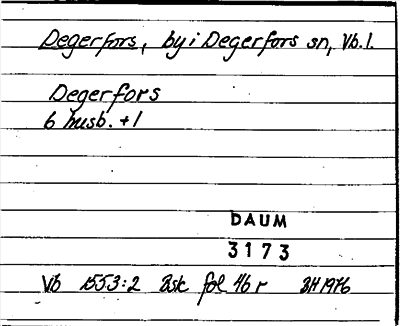 Degerfors, by i Degerfors sn, Vb. l.
Degerfors
6 husb. + 1
DAUM
3173
Vb 1553:2 Bsk fol 46 r BH 1976